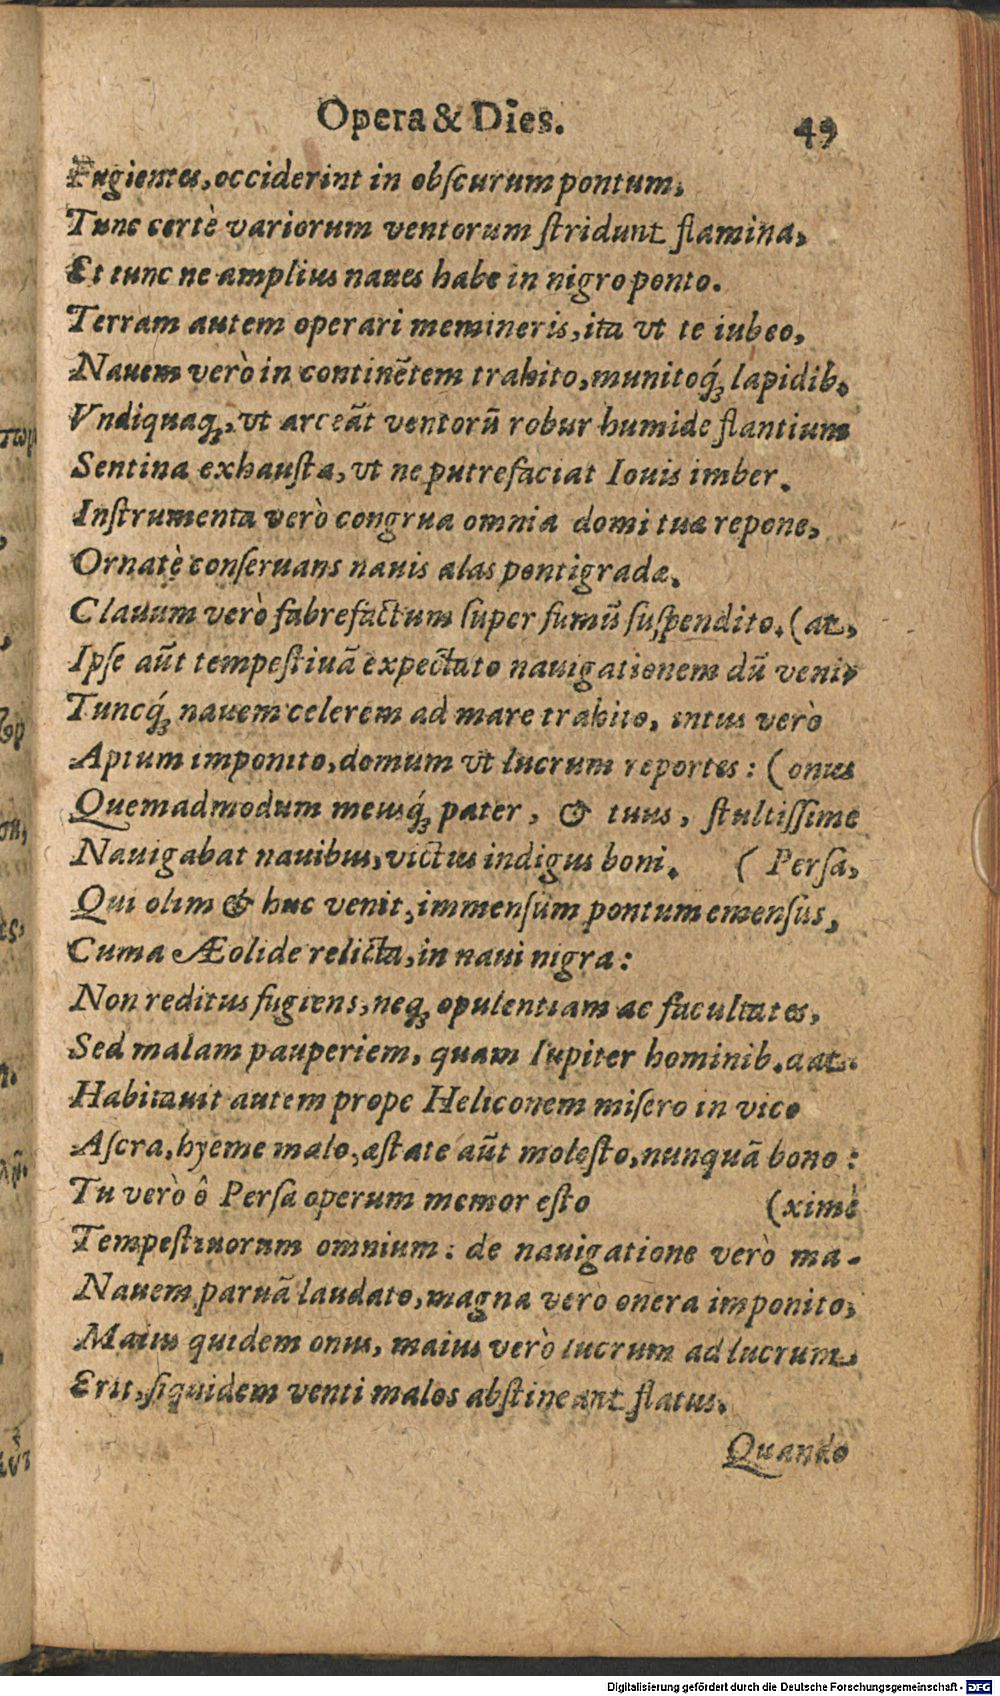 Opera & Dies. 49
Fugientes, occiderint in obſcurum pontum,
Tunc certè variorum ventorum ſtridunt flamina,
Et tunc ne amplius naues habe in nigro ponto.
Terram autem operari memineris, ita vt te iubeo,
Nauem verò in continẽtem trahito, munitoq́ꝫ lapidib.
Vndiquaqꝫ, vt arceãt ventorũ robur humide flantium
Sentina exhauſta, vt ne putrefaciat Iouis imber.
Inſtrumenta verò congrua omnia domi tuæ repone,
Ornatè conſeruans nauis alas pontigradæ.
Clauum verò fabrefactum ſuper fumũ ſuſpendito. (at,
Ipſe aũt tempeſtiuã expectato nauigationem dũ veni-
Tuncq́ꝫ nauem celerem ad mare trahito, intus verò
Aptum imponito, domum vt lucrum reportes: (onus
Quemadmodum meusq́ꝫ pater, & tuus, ſtultiſſime
Nauigabat nauibus, victus indigus boni. (Perſa,
Qui olim & huc venit, immenſum pontum emenſus,
Cuma Æolide relicta, in naui nigra:
Non reditus fugiens, neqꝫ opulentiam ac facultates,
Sed malam pauperiem, quam Iupiter hominib. dat.
Habitauit autem prope Heliconem miſero in vico
Aſcra, hyeme malo, æſtate aũt moleſto, nunquã bono:
Tu verò ô Perſa operum memor eſto (ximè
Tempeſtiuorum omnium: de nauigatione verò ma-
Nauem paruã laudato, magna verò onera imponito,
Maius quidem onus, maius verò lucrum ad lucrum
Erit, ſiquidem venti malos abſtineant flatus.
Quando
Digitalisierung gefördert durch die Deutsche Forschungsgemeinschaft - DFG